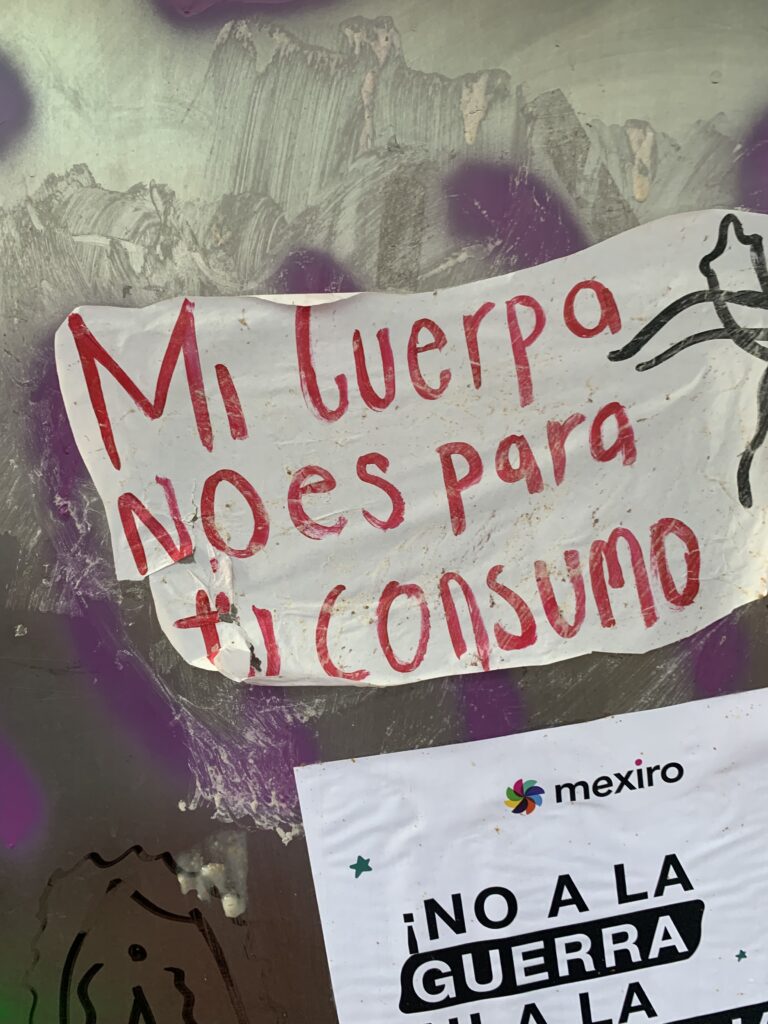 Mi Cuerpa
No es para
ti consumo
mexiro
¡NO A LA
GUERRA
NI A LA